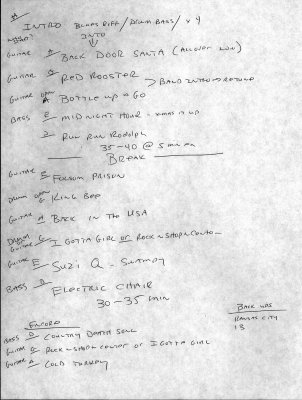 INTRO BLUES RIFF / DRUM BASS / x 4
INTO
GUITAR A BACK DOOR SANTA (ALLOVER LOW)
GUITAR A RED ROOSTER > BAND INTRO → ROTUND
GUITAR A BOTTLE UP & GO
BASS E MIDNIGHT HOUR - XMAS IT UP
D RUN RUN RUDOLPH
35-40 @ 5 min ea
BREAK
GUITAR E FOLSOM PRISON
DRUM KING BEE
GUITAR A BACK IN THE USA
GUITAR I GOTTA GIRL OR ROCK N SHOPN CONTO
GUITAR E - SUZI Q - SWAMPY
BASS D ELECTRIC CHAIR
30-35 min
BACK UPS
KANSAS CITY
13
ENCORE
BASS COUNTRY DEATH SONG
GUITAR ROCK N SHOPN CONTOF OR I GOTTA GIRL
GUITAR A COLD TURKEY